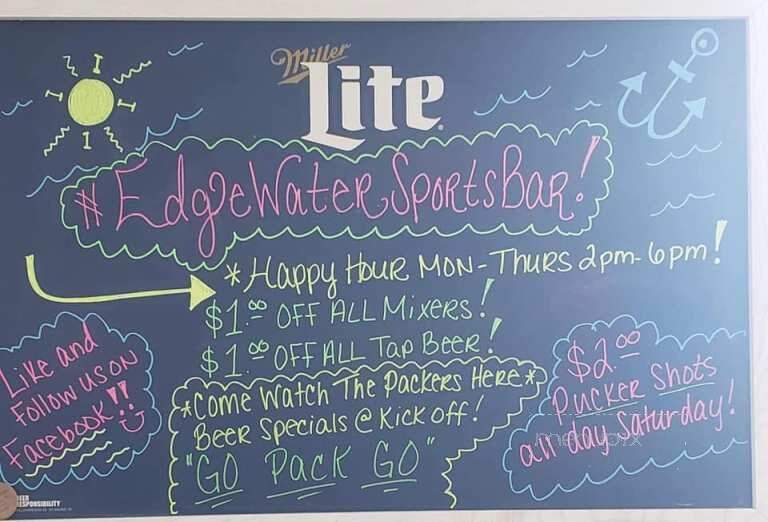 Miller
Lite
#EdgeWaterSportsBar!
*Happy Hour Mon-Thurs 2pm-6pm!
$1.00 OFF ALL MIXERS!
$1.00 OFF ALL TAP BEER!
Like and
Follow us on
Facebook!!
*Come Watch The Packers Here*
Beer Specials @ Kick off!
"GO PACK GO"
$2.00
Pucker Shots
all day Saturday!
RESPONSIBILITY